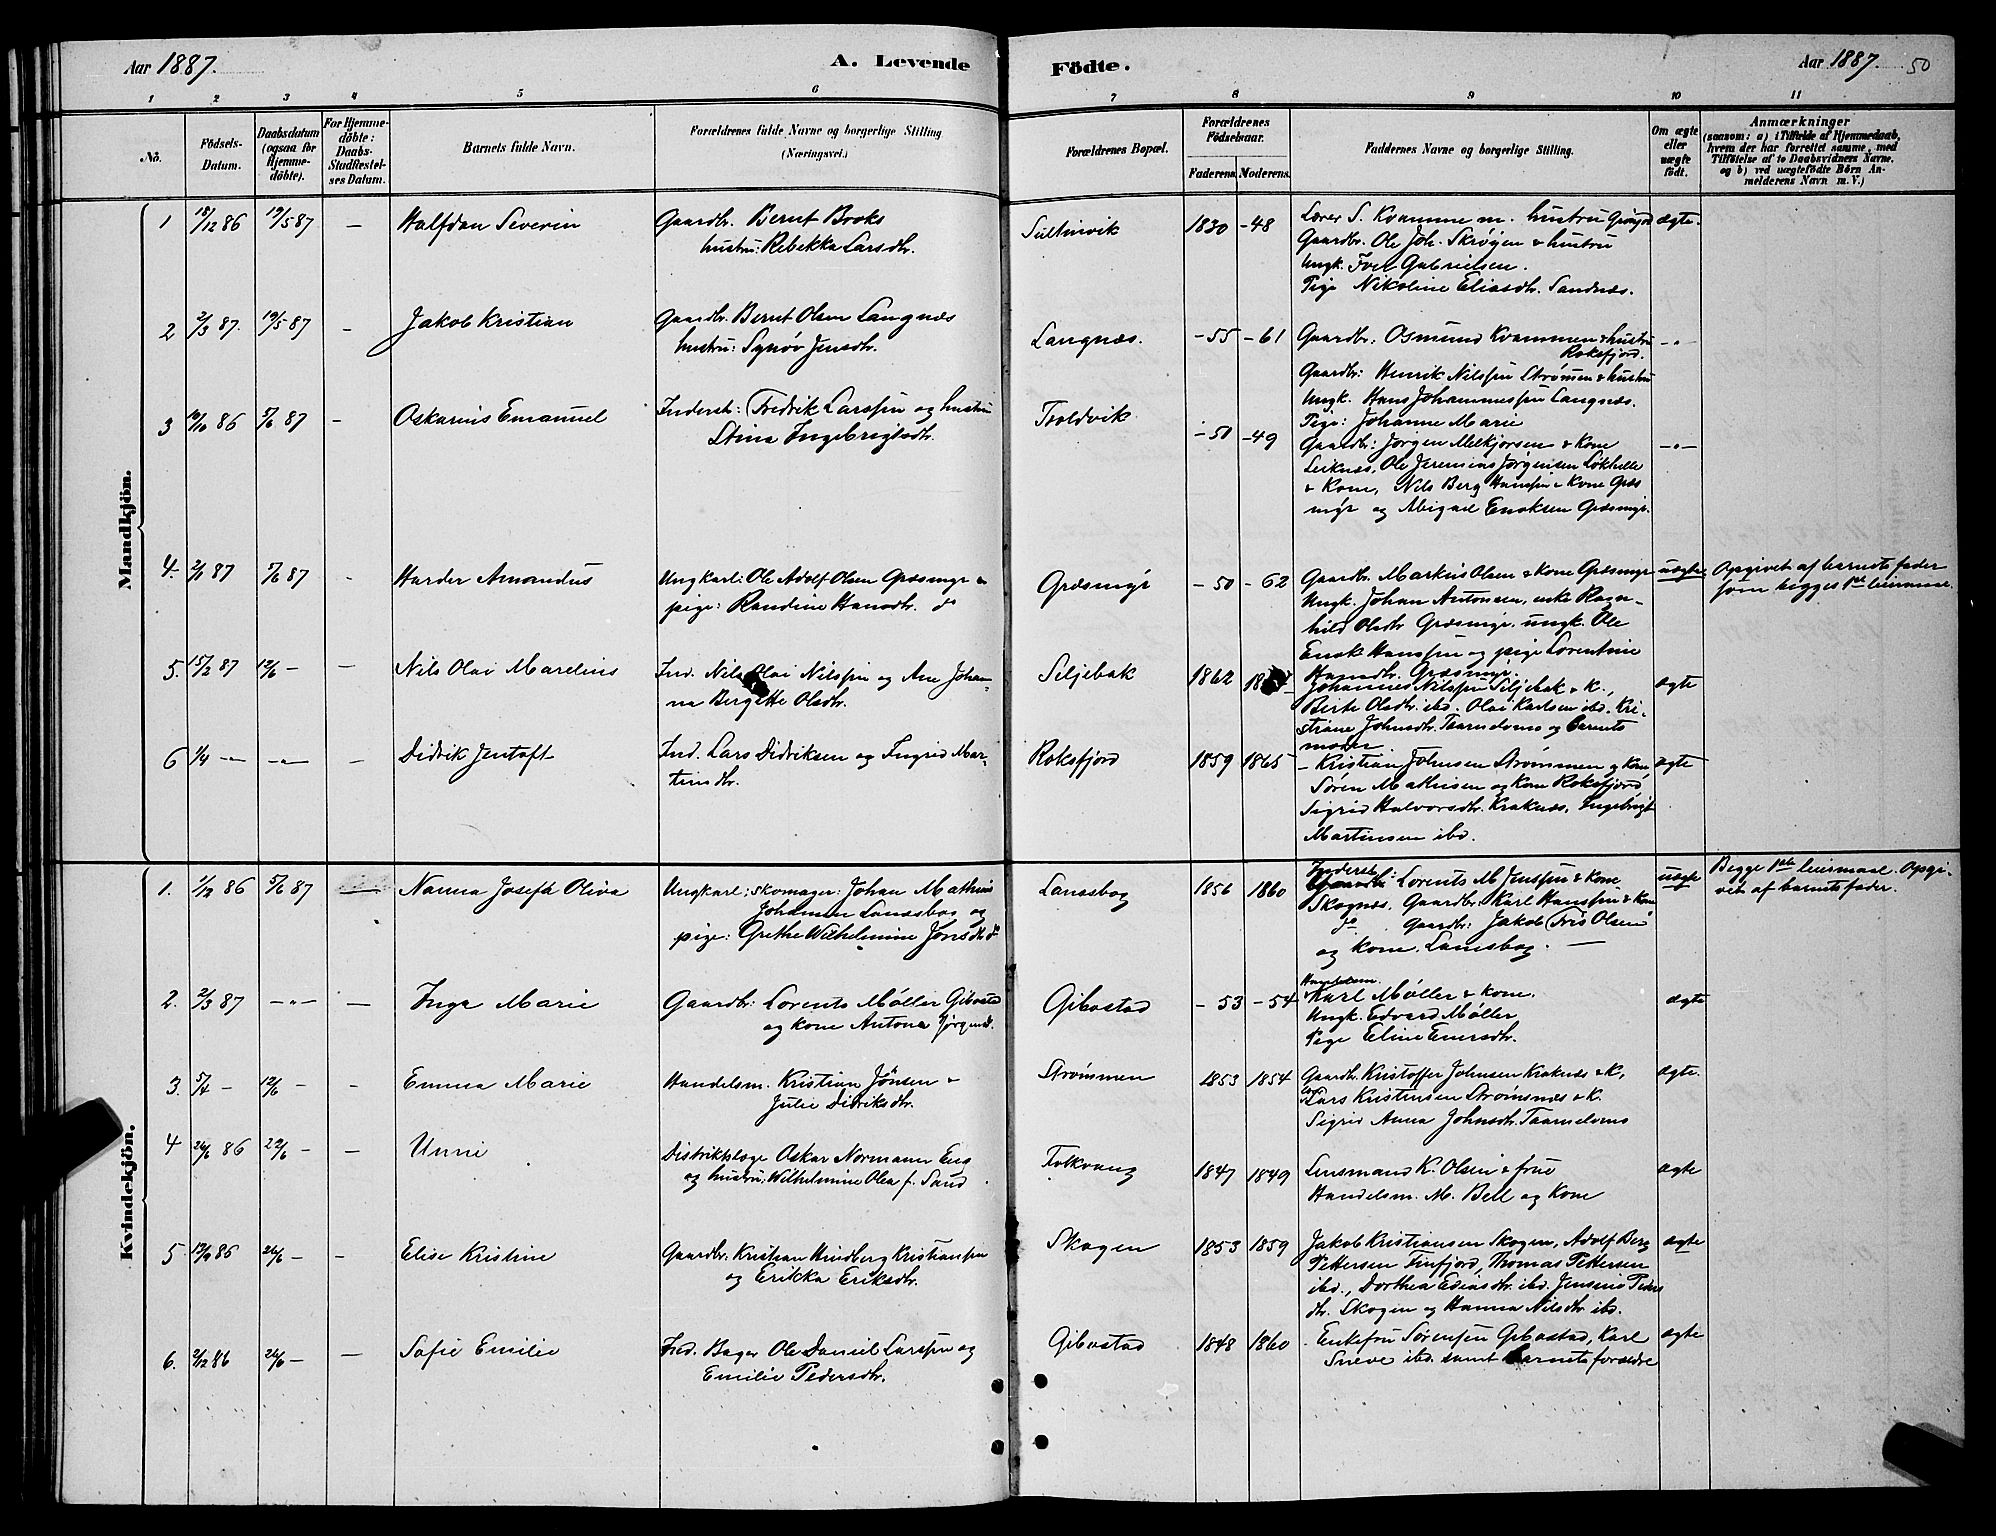 Aar 1887. A. Levende Födte. Aar 1887. 50
1 2 3 4 5 6 7 8 9 10 11
No. Födsels-Datum. Daabsdatum (ogsaa for Hjemme-döbte). For Hjemme-döbte: Daabs-Stadfæstel-ses Datum. Barnets fulde Navn. Forældrenes fulde Navne og borgerlige Stilling (Næringsvei.) Forældrenes Bopæl. Forældrenes Födselsaar. Faderens. Moderens. Faddernes Navne og borgerlige Stilling. Om ægte eller uægte födt. Anmærkninger
(saasom: a) i Tilfælde af Hjemmedaab,
hvem der har forrettet samme, med
Tilföielse af to Daabsvidners Navne.
og b) ved uægtefödte Börn An-
melderens Navn m. V.)
Mandkjön.
1 18/12 86 19/5 87 — Halfdan Severin
Gaardbr. Bernt Books
hustru: Rebekka Larsdtr.
1830 -48
Lærer S. Kvamme m. hustru
Gaardbr. Ole Joh. Skrøgen & hustru
Ungk. Gabrielsen.
Pige Nikoline Eliasdtr. Sandnæs.
ægte.
2 2/3 87. 19/5 87 - Jakob Kristian
Gaardbr. Bernt Olsen Langnæs
hustru: Synøv Jensdtr.
Langnæs. -55 -61
Gaardbr: Osmund Kvammen & hustru
Roksfjord.
Gaardbr: Henrik Nilssen Strømen & hustru
Ungk. Hans Johannessen Langnæs.
Pige: Johanne Marie
-"-
3 19/10 86 5/6 87 - Oskarius Emanuel
Inderst: Fredrik Larssen og hustru
Stina Ingebrigtsdtr.
Troldvik -50 -49
Gaardbr: Jørgen Melkjorsen & Kone
Leiknæs, Ole Jeremias Jørgensen Løkhelle
& Kone, Nils Berg Hanssen & Kone Græs
myr og Abigael Enoksen Græsmyr.
-"-
4. 2/1 87 5/6 87 - Harder Amandus
Ungkarl: Ole Adolf Olsen Græsmyr &
pige: Randine Hansdtr. do
Græsmyr -50 -62
Gaardbr. Markus Olsen & Kone Græsmyr
Ungk. Johan Antonsen, enke Ragn-
hild Olsdtr Græsmyr. ungk. Ole
Enok Hanssen og pige Lorentine
Hansdtr. Græsmyr.
uægte
Opgivet af barnets fader
som begges 1ste leiermaal.
5. 15/2 87 12/6 - — Nils Olai Marelius
Ind. Nils Olai Nilssen og Ane Johan-
na Bergitte Olsdtr.
Seljebak 1862
Johannes Nilssen Seljebak & K.,
Birte Olsdtr. ibd. Olai Karlsen ibd. Kri-
stiane Johnsdtr. Taarnelvens og barnets
moder
ægte
6 1/4 -"- -"- - Didrik Jentoft
Ind. Lars Didriksen og Ingrid Mar-
tinsdtr.
Roksfjord 1859 1865
- Kristian Johnsen Strømmen og Kone
Søren Mathisen og Kone Roksfjord,
Sigrid Halvorsdtr. Kraknæs, Ingebrigt
Martinsen ibd.
ægte
Kvindekjön.
1. 1/12 86 5/6 87 — Nanna Josefa Oliva
Ungkarl; skomager: Johan Mathias
Johansen Lanesbog og
pige: Grethe Wilhelmine Jonsdtr do
Lanesbog 1856 1860
Inderst: Lorents M Jenssen & Kone
Skognæs. Gaardbr. Karl Hanssen & Kone
do Gaardbr: Jakob Friis Olsen
og Kone. Lanesbog. —
uægte
Begge 1ste leiermaal. Opgi-
vet af barnets fader.
2. 2/3 87 -"- — Inga Marie
Gaardbr: Lorents Møller Gibostad
og Kone Antona Jørgensd.
Gibostad -53 -54
Handelsm.
Karl Møller & Kone.
Ungk. Edvard Møller
Pige Eline Enersdtr.
ægte
3. 5/4 - 12/6 - - Emma Marie
Handelsm. Kristian Jönsen &
Julie Didriksdtr.
Strømmen 1853 1854
Gaardb. Kristoffer Johnsen Kraknæs & K,
Lars Kristensen Strømsnæs & K.
Sigrid Anna Johnsdtr. Taarnelvens
ægte.
4 26/6 86 22/6 - - Unni
Distriktslæge Oskar Normann Eng
og hustru, Wilhelmine Olea f. Sand
Folkvang 1847 1849
Lensmand K. Olsen & frue
Handelsm. M. Bell og Kone
ægte
5 86 26/6 - - Elise Kristine
Gaardbr. Kristian Hindberg Kristianssen
og Erikka Eriksdtr.
Skogen 1853 1859
Jakob Kristiansen Skogen, Adolf Berg
Pettersen Finfjord, Thomas Pettersen
ibd., Dorthea Ediasdtr ibd. Jensine Peders
dtr. Skogen og Hanna Nilsdtr ibd.
ægte
6. 2/12 86 26/6 - — Sofie Emilie
Ind. Bager Ole Daniel Larssen og
Emilie Pedersdtr.
Gibostad 1848 1860
Enkefru Sørensen Gibostad, Karl
Sneve ibd. samt barnets forældre
ægte